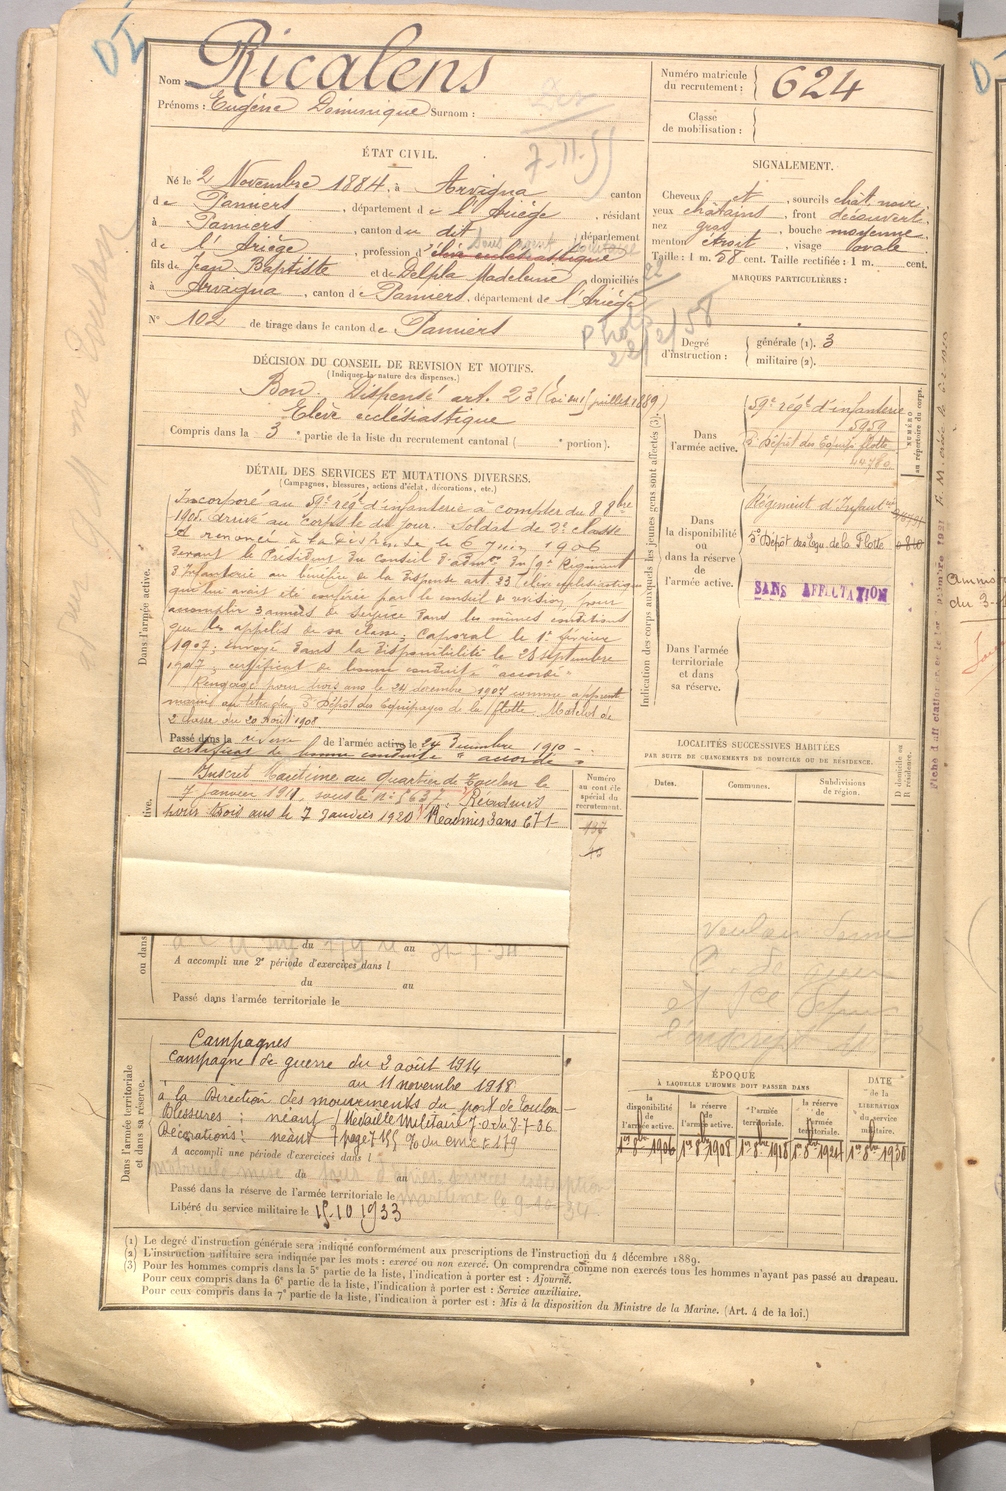 Nom : Ricalens
Prénoms : Eugène Dominique Surnom :
Numéro matricule du recrutement : 624
Classe de mobilisation :
ÉTAT CIVIL.
Né le 2 Novembre 1884, à Arvigna canton
de Pamiers, département de l'Ariège, résidant
à Pamiers, canton du dit, département
de l'Ariège, profession d'élève ecclésiastique
fils de Jean Baptiste et de Delpla Madeleine, domiciliés
à Arvigna, canton de Pamiers, département de l'Ariège
N° 102 de tirage dans le canton de Pamiers
SIGNALEMENT.
Cheveux et, sourcils chât. noirs,
yeux châtains, front découvert,
nez gros, bouche moyenne,
menton étroit, visage ovale
Taille : 1 m. 58 cent. Taille rectifiée : 1 m. cent.
MARQUES PARTICULIÈRES :
Degré d'instruction : générale (1). 3
militaire (2).
DÉCISION DU CONSEIL DE REVISION ET MOTIFS.
(Indiquer la nature des dispenses.)
Bon. Dispensé art. 23 (Loi du 15 juillet 1889)
Elève ecclésiastique
Compris dans la 3e partie de la liste du recrutement cantonal ( e portion).
DÉTAIL DES SERVICES ET MUTATIONS DIVERSES.
(Campagnes, blessures, actions d'éclat, décorations, etc.)
Dans l'armée active.
Incorporé au 59e rég. d'infanterie à compter du 8 8bre
1905. Arrivé au corps le dit jour. Soldat de 2e classe
A renoncé à la dispense le 6 juin 1906
devant le Président du Conseil d'adm. du 59e Régiment
d'Infanterie au bénéfice de la dispense art. 23 élève ecclésiastique
qui lui avait été conférée par le conseil de révision, pour
accomplir 3 années de service dans les mêmes conditions
que les appelés de sa classe. Caporal le 1er février
1907; envoyé dans la disponibilité le 28 septembre
1907; certificat de bonne conduite "accordé"
Rengagé pour trois ans le 24 décembre 1907 comme apprenti
marin au titre du 5e Dépôt des Equipages de la flotte. Matelot de
2e classe du 20 Août 1908
Passé dans la réserve de l'armée active le 24 Décembre 1910
certificat de bonne conduite "accordé"
Inscrit Maritime au Quartier de Toulon le
7 janvier 1911, sous le n° 5637. Réadmis
pour trois ans le 7 Janvier 1920 Réadmis 3 ans
Numéro au contrôle spécial du recrutement.
Indication des corps auxquels les jeunes gens sont affectés (3).
NUMÉRO au répertoire du corps.
Dans l'armée active.
59e rég. d'infanterie
5959
5e Dépôt des Equip. flotte
44780
Dans la disponibilité ou dans la réserve de l'armée active.
Régiment d'Infant
5e Dépôt des Equ. de la Flotte
SANS AFFECTATION
Dans l'armée territoriale et dans sa réserve.
LOCALITÉS SUCCESSIVES HABITÉES
PAR SUITE DE CHANGEMENTS DE DOMICILE OU DE RÉSIDENCE.
Dates. Communes. Subdivisions de région. D domicile ou R résidence.
ou dans
du au 31-7-24
A accompli une 2e période d'exercices dans l
du au
Passé dans l'armée territoriale le
Dans l'armée territoriale et dans sa réserve.
Campagnes
Campagne de guerre du 2 août 1914
au 11 novembre 1918
à la Direction des mouvements du port de Toulon
Blessures : néant Médaille Militaire J.O. du 8-7-36
Décorations : néant
A accompli une période d'exercices dans l
du au
Passé dans la réserve de l'armée territoriale le
Libéré du service militaire le 15-10 1933
ÉPOQUE
À LAQUELLE L'HOMME DOIT PASSER DANS
la disponibilité de l'armée active.
la réserve de l'armée active.
l'armée territoriale.
la réserve de l'armée territoriale.
DATE de la LIBÉRATION du service militaire.
1er 8bre 1906 1er 8bre 1908 1er 8bre 1918 1er 8bre 1924 1er 8bre 1930
(1) Le degré d'instruction générale sera indiqué conformément aux prescriptions de l'instruction du 4 décembre 1889.
(2) L'instruction militaire sera indiquée par les mots : exercé ou non exercé. On comprendra comme non exercés tous les hommes n'ayant pas passé au drapeau.
(3) Pour les hommes compris dans la 5e partie de la liste, l'indication à porter est : Ajourné.
Pour ceux compris dans la 6e partie de la liste, l'indication à porter est : Service auxiliaire.
Pour ceux compris dans la 7e partie de la liste, l'indication à porter est : Mis à la disposition du Ministre de la Marine. (Art. 4 de la loi.)